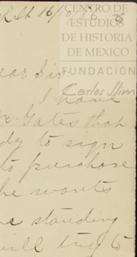 16/8/86
CENTRO DE
ESTUDIOS
DE HISTORIA
DE MEXICO
FUNDACIÓN
Carlos Slim
ear Sir
I have
Gates that
dy to sign
to purchase
he wants
standing
will try to